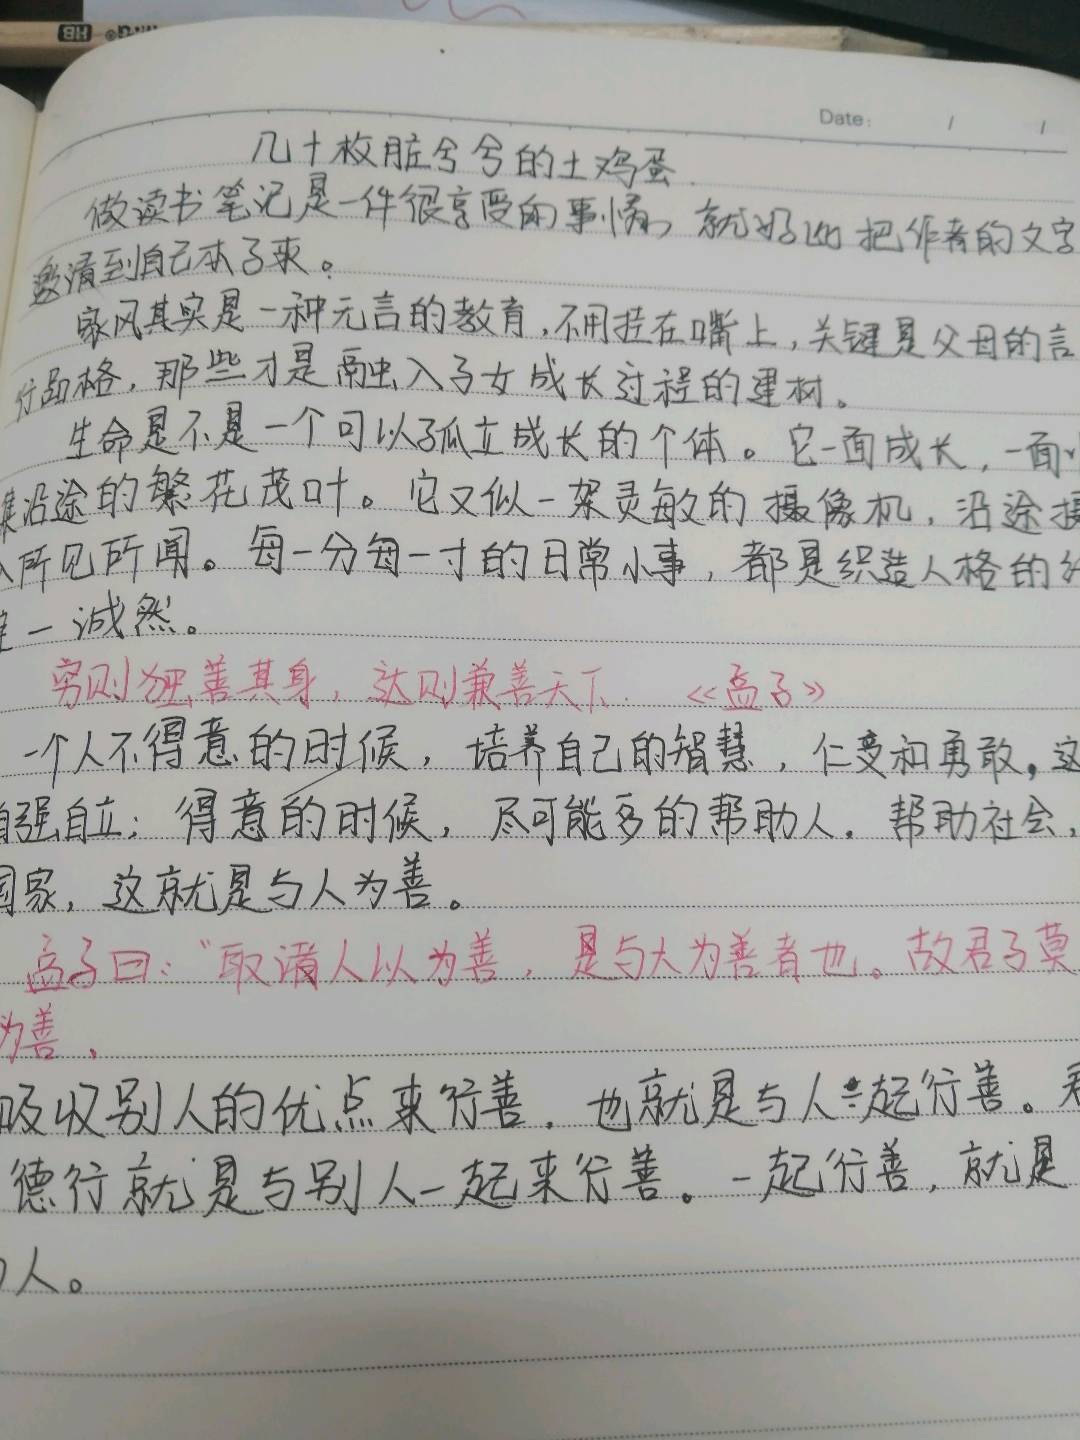 HB
Date: / /
几十枚脏兮兮的土鸡蛋
做读书笔记是一件很享受的事情，就好比把作者的文字
邀请到自己本子来。
家风其实是一种无言的教育，不用挂在嘴上，关键是父母的言
行品格，那些才是融入子女成长过程的建材。
生命是不是一个可以孤立成长的个体。它一面成长，一面
沿途的繁花茂叶。它又似一架灵敏的摄像机，沿途摄
所见所闻。每一分每一寸的日常小事，都是织造人格的
一诚然。
穷则独善其身，达则兼善天下 《孟子》
一个人不得意的时候，培养自己的智慧，仁爱和勇敢，这
自强自立；得意的时候，尽可能多的帮助人。帮助社会，
国家，这就是与人为善。
孟子曰：“取诸人以为善，是与人为善者也。故君子莫
为善，
吸收别人的优点来行善，也就是与人一起行善。君
德行就是与别人一起来行善。一起行善，就是
人。